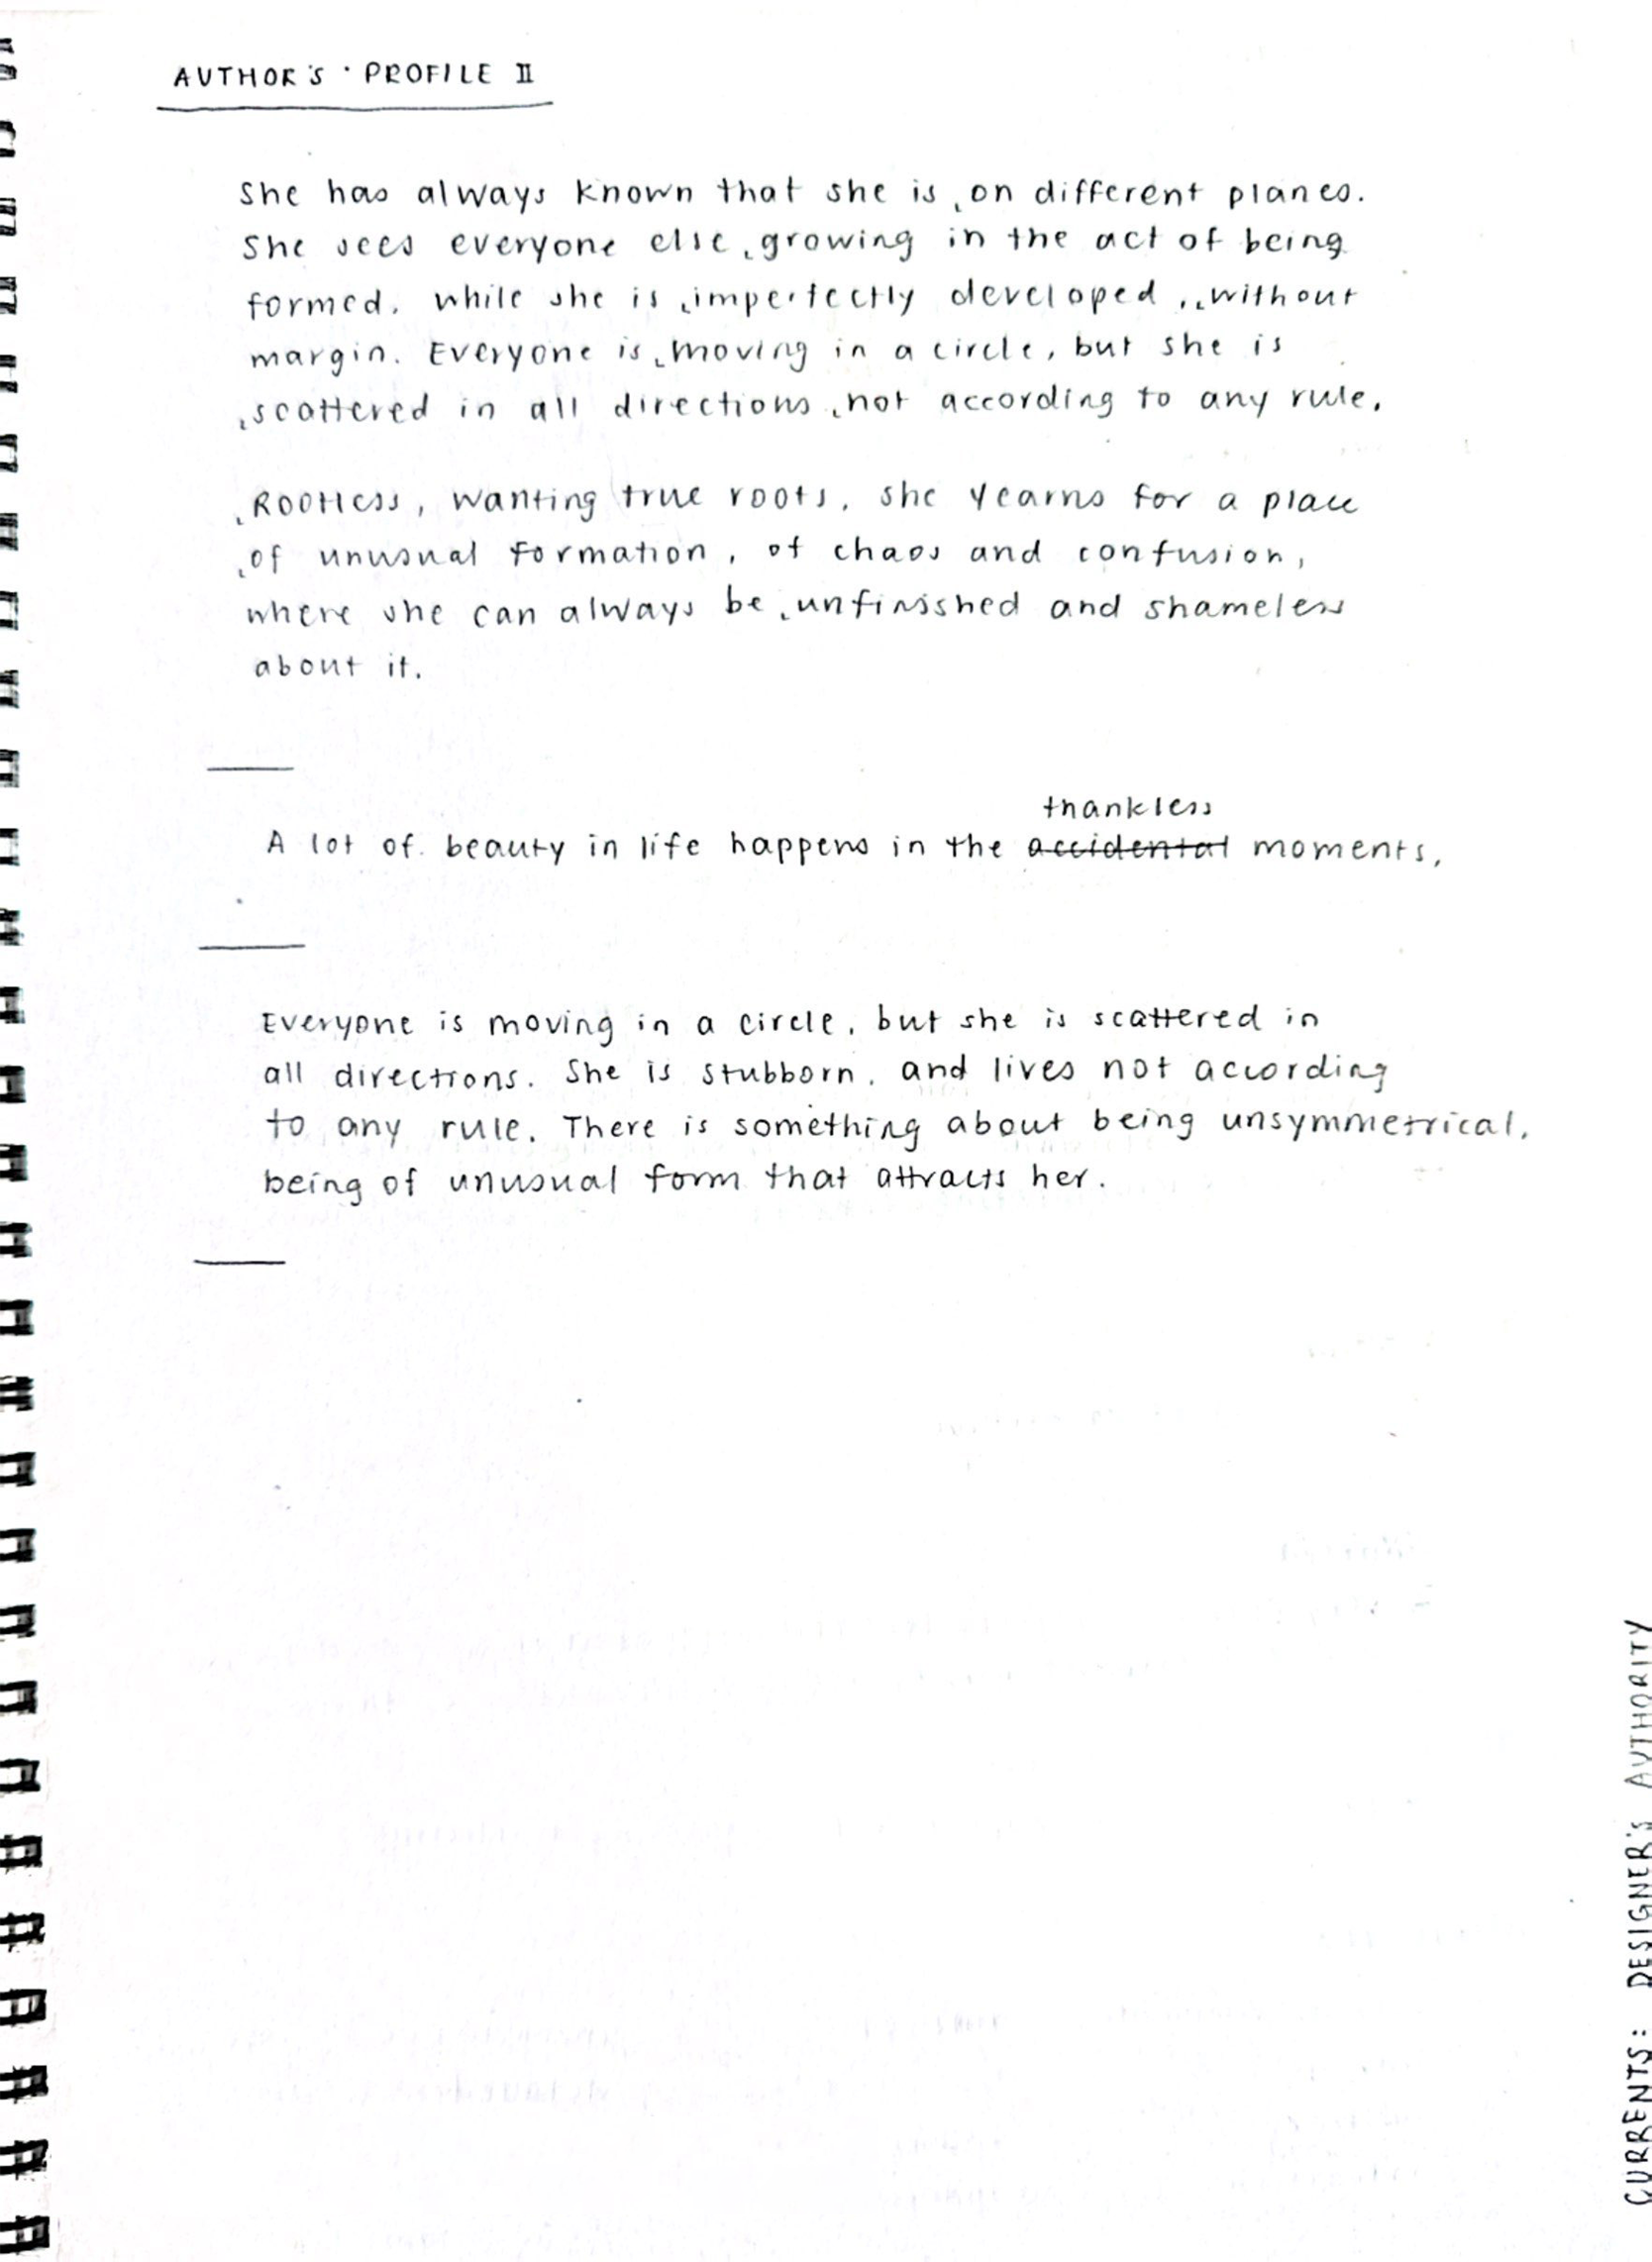 AUTHOR'S · PROFILE II
She has always known that she is ˌon different planes.
She sees everyone else ˌgrowing in the act of being
formed, while she is ˌimperfectly developed, ˌˌwithout
margin. Everyone is ˌmoving in a circle, but she is
ˌscattered in all directions ˌnot according to any rule.
ˌRootless, wanting true roots, she yearns for a place
ˌof unusual formation, of chaos and confusion,
where she can always be ˌunfinished and shameless
about it.
thankless
A lot of beauty in life happens in the accidental moments,
Everyone is moving in a circle, but she is scattered in
all directions. She is stubborn, and lives not according
to any rule. There is something about being unsymmetrical,
being of unusual form that attracts her.
CURRENTS: DESIGNER'S AUTHORITY